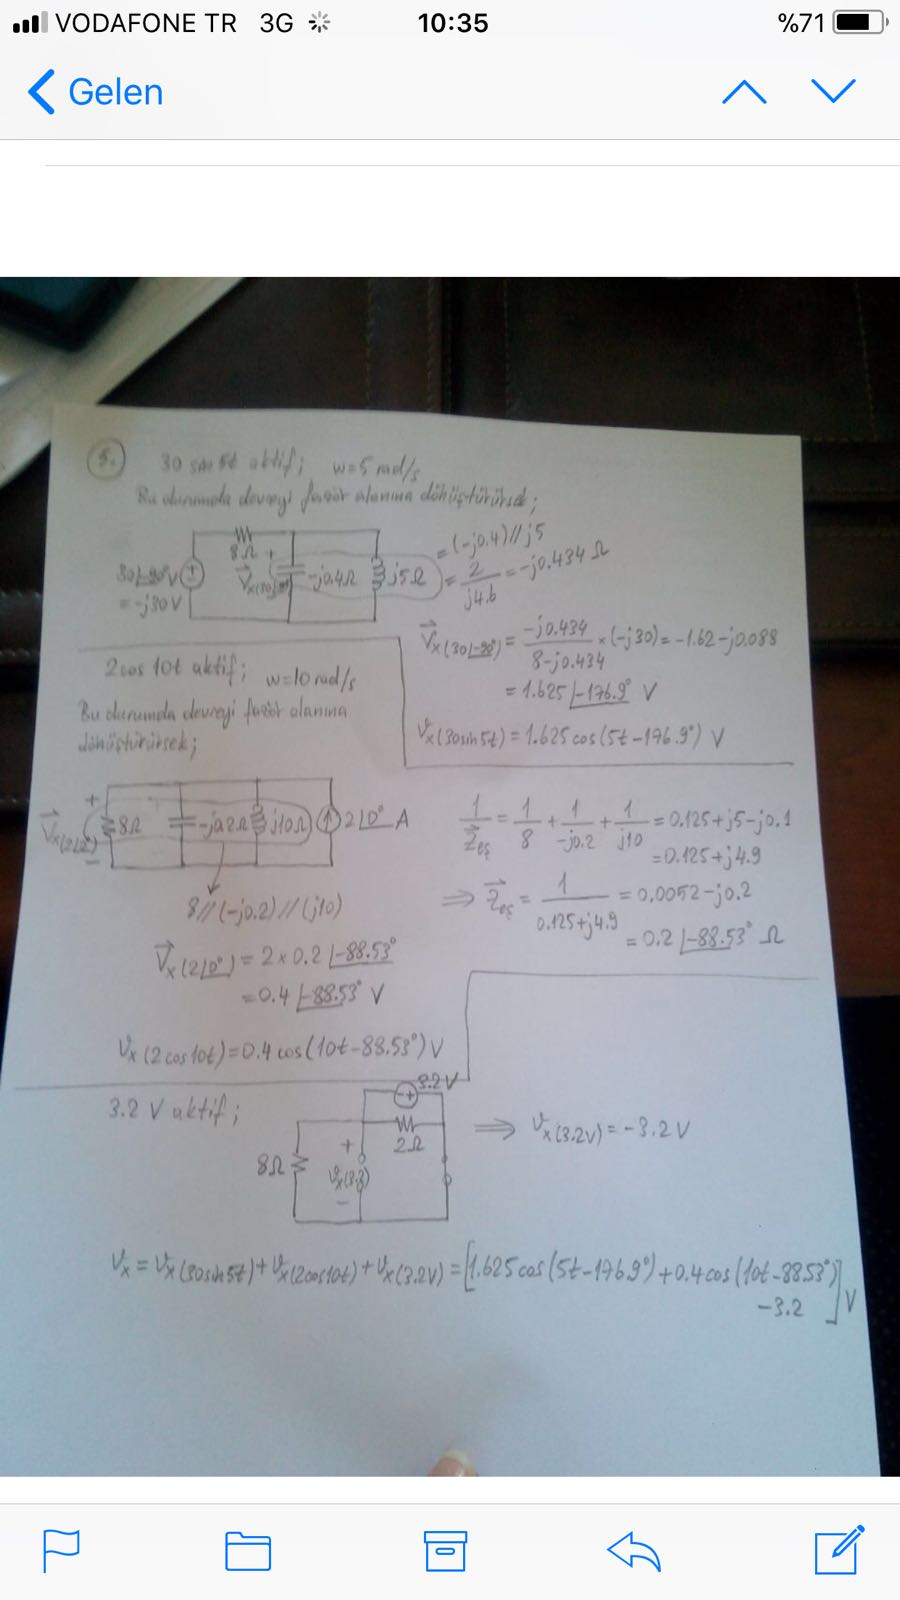 VODAFONE TR 3G 10:35 %71
Gelen
5. 30 sin 5t aktif; w=5 rad/s
Bu durumda devreyi fazör alanına dönüştürürsek;
8Ω
30∠-90° V
= -j30 V
+
-j0.4Ω
j5Ω
= (-j0.4)//j5
= 2/j4.6 = -j0.434 Ω
V⃗x(30∠-90°) = -j0.434/8-j0.434 × (-j30) = -1.62-j0.088
= 1.625∠-176.9° V
Vx(30sin5t) = 1.625cos(5t-176.9°) V
2cos 10t aktif; w=10 rad/s
Bu durumda devreyi fazör alanına
dönüştürürsek;
+
V⃗x(2∠0°)
-
8Ω
-j0.2Ω
j10Ω
2∠0° A
8//(-j0.2)//(j10)
1/Z⃗eş = 1/8 + 1/-j0.2 + 1/j10 = 0.125+j5-j0.1
= 0.125+j4.9
⇒ Z⃗eş = 1/0.125+j4.9 = 0.0052-j0.2
= 0.2∠-88.53° Ω
V⃗x(2∠0°) = 2×0.2∠-88.53°
= 0.4∠-88.53° V
Vx(2cos10t) = 0.4cos(10t-88.53°) V
3.2 V aktif;
3.2 V
- +
2Ω
8Ω
+
-
⇒ Vx(3.2V) = -3.2 V
Vx = Vx(30sin5t) + Vx(2cos10t) + Vx(3.2V) = [1.625cos(5t-176.9°) + 0.4cos(10t-88.53°)
-3.2] V